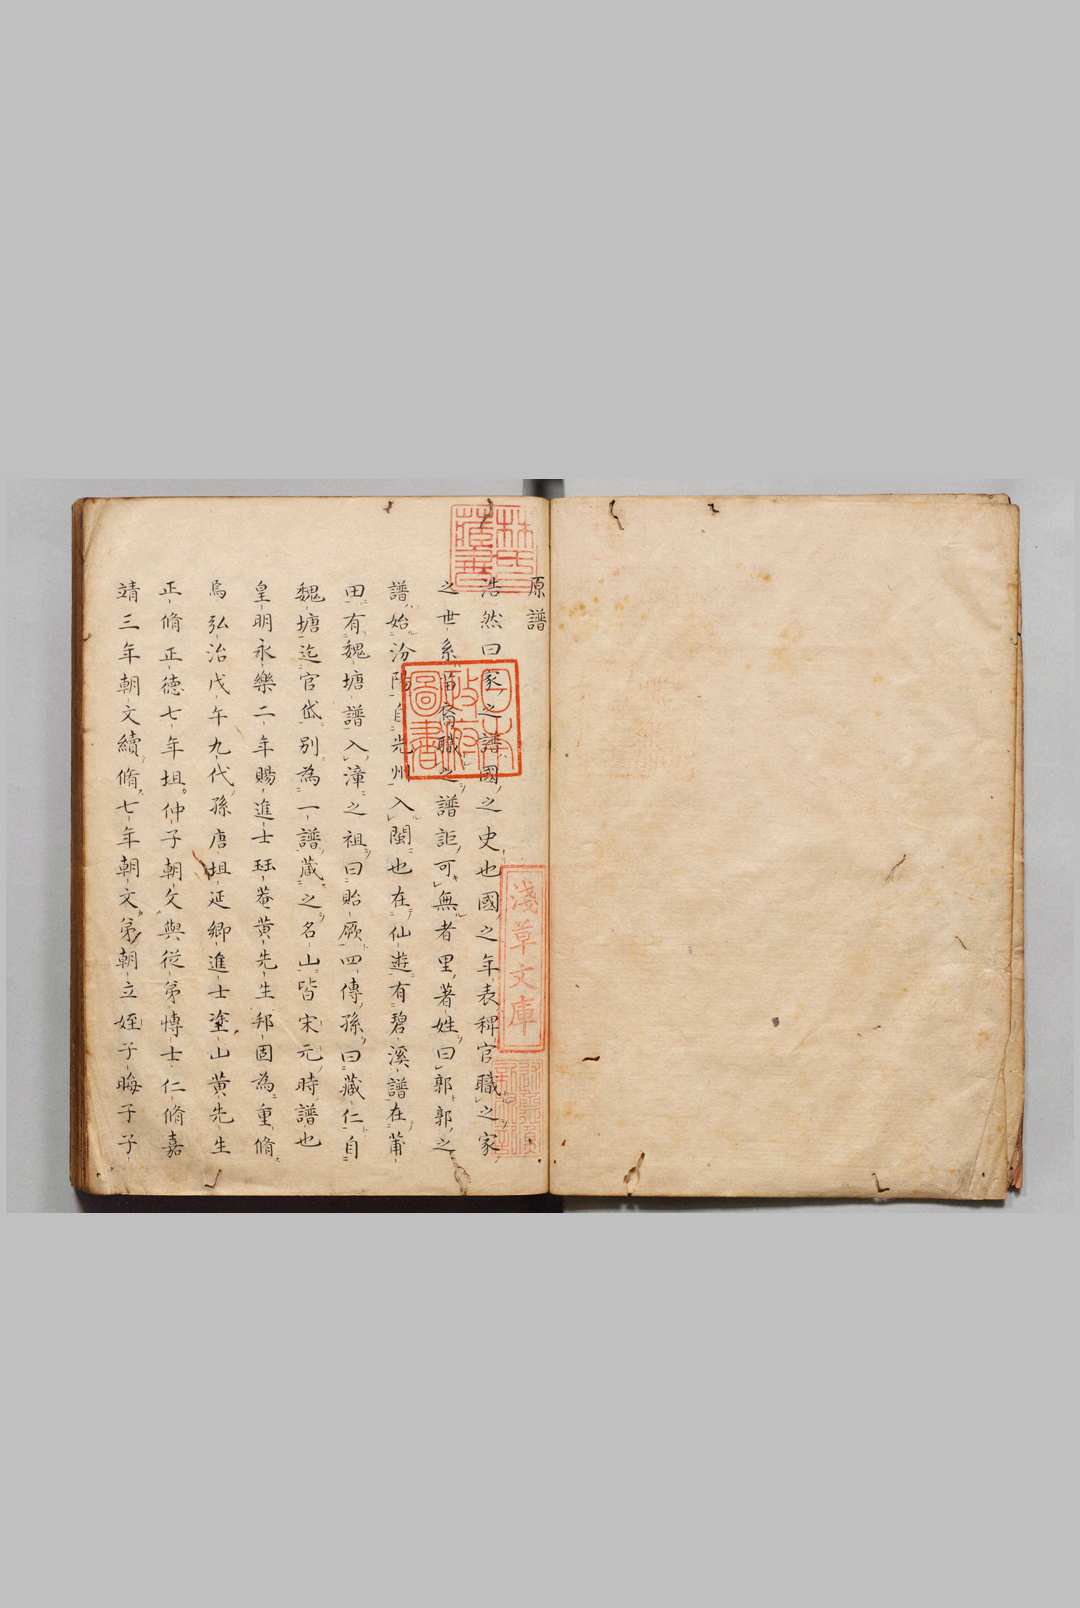 原譜
浩然曰家之譜國之史也國之年表稗官職之家
之世系苗裔職之譜詎可無者里著姓曰郭郭之
譜始汾陽自光州入閩也在仙遊有碧溪譜在莆
田有魏塘譜入漳之祖曰貽厥四傳孫曰藏仁自
魏塘迄官岱別為一譜藏之名山皆宋元時譜也
皇明永樂二年賜進士珏菴黄先生邦固為重脩
焉弘治戊午九代孫唐坦延鄉進士塗山黄先生
正脩正德七年坦仲子朝文與從弟博士仁脩嘉
靖三年朝文續脩七年朝文弟朝立姪子晦子子
林氏藏書
日本政府圖書
淺草文庫